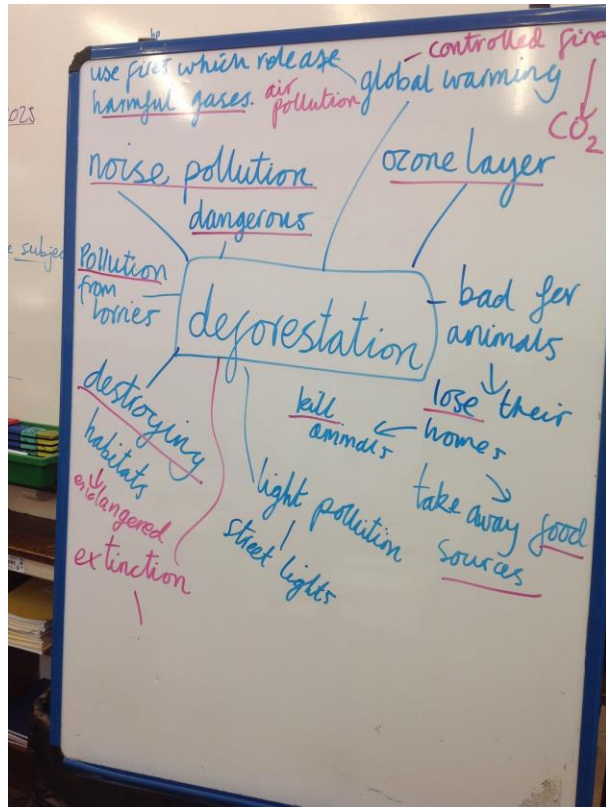 use fires which release
harmful gases.
air
pollution
global warming
controlled fire
CO2
noise pollution
dangerous
ozone layer
Pollution
from
lorries
deforestation
bad for
animals
lose their
homes
kill
animals
take away food
sources
destroying
habitats
endangered
extinction
light pollution
street lights